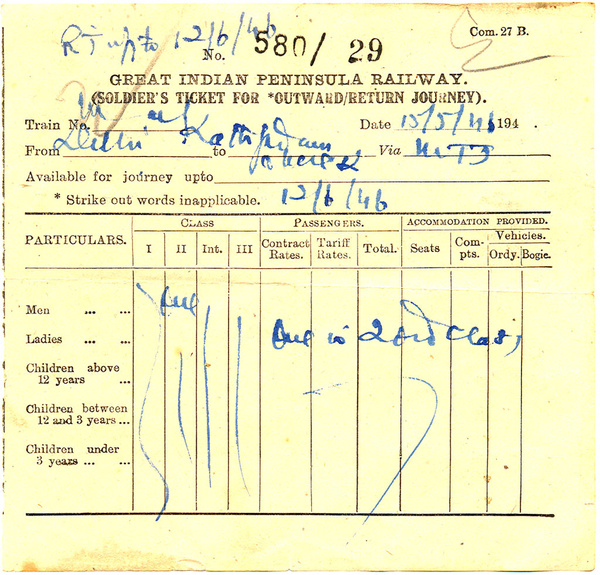 R J upto 12/6/46
No. 580/ 29
Com. 27 B.
GREAT INDIAN PENINSULA RAILWAY.
(SOLDIER'S TICKET FOR *OUTWARD/RETURN JOURNEY).
Train No. Date 15/5/46 194 .
From Delhi to Kathgodam Via MTJ
& back
Available for journey upto
* Strike out words inapplicable. 12/6/46
PARTICULARS. CLASS PASSENGERS. ACCOMMODATION PROVIDED.
I II Int. III Contract Rates. Tariff Rates. Total. Seats Com-pts. Vehicles.
Ordy. Bogie.
Men ... ... One
Ladies ... ... One in 2nd Class
Children above
12 years ...
Children between
12 and 3 years ...
Children under
3 years ... ...